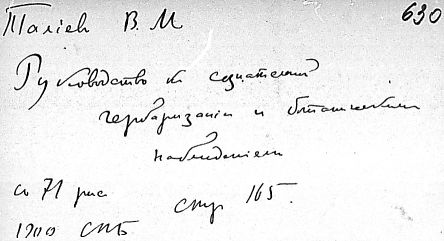 Талiев В. М 630
Руководство к сознательной
гербаризацiи и ботаническим
наблюденiям
со 71 рис
стр 165.
1900 СПБ